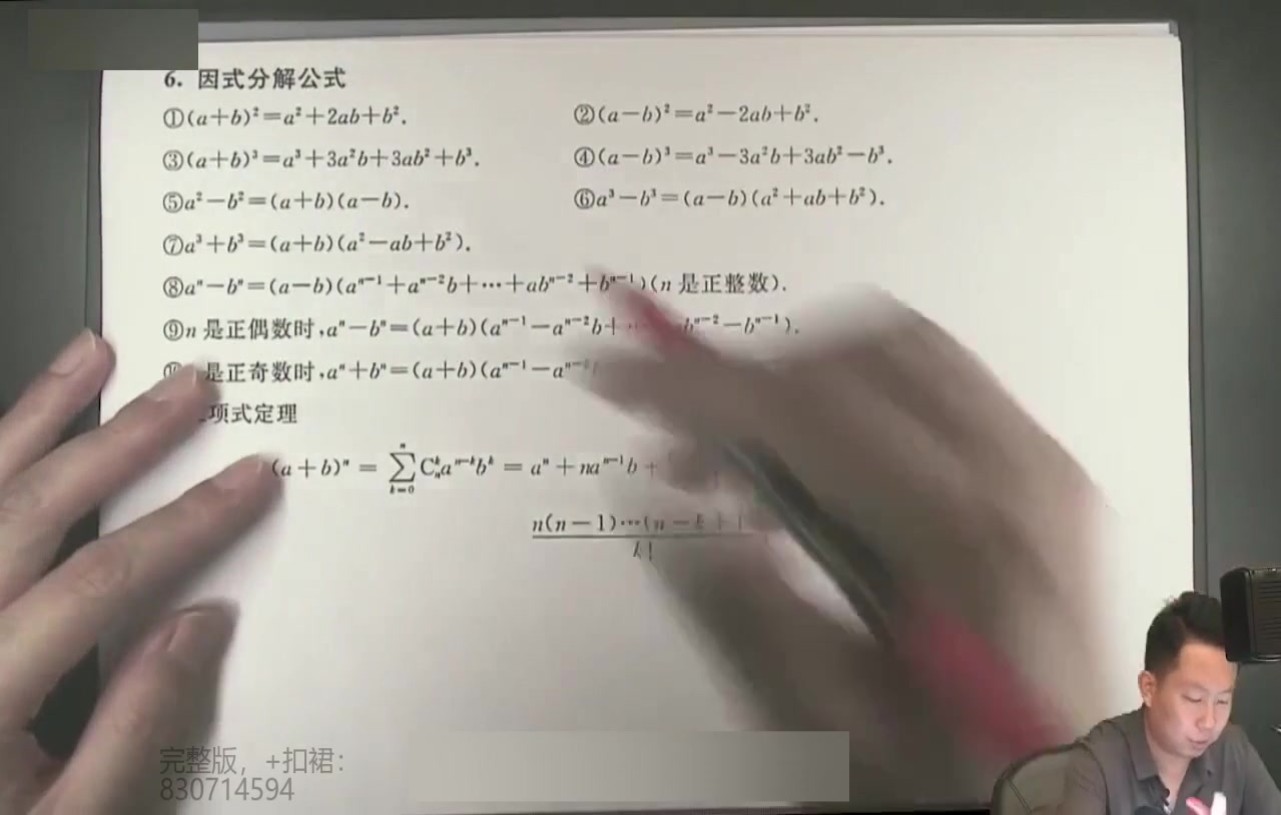 6. 因式分解公式
①(a+b)²=a²+2ab+b². ②(a−b)²=a²−2ab+b².
③(a+b)³=a³+3a²b+3ab²+b³. ④(a−b)³=a³−3a²b+3ab²−b³.
⑤a²−b²=(a+b)(a−b). ⑥a³−b³=(a−b)(a²+ab+b²).
⑦a³+b³=(a+b)(a²−ab+b²).
⑧aⁿ−bⁿ=(a−b)(aⁿ⁻¹+aⁿ⁻²b+⋯+abⁿ⁻²+bⁿ⁻¹)(n 是正整数).
⑨n 是正偶数时,aⁿ−bⁿ=(a+b)(aⁿ⁻¹−aⁿ⁻²b+⋯ bⁿ⁻²−bⁿ⁻¹).
是正奇数时,aⁿ+bⁿ=(a+b)(aⁿ⁻¹−aⁿ⁻
项式定理
(a+b)ⁿ = ∑ₖ₌₀ⁿ Cₙᵏaⁿ⁻ᵏbᵏ = aⁿ + naⁿ⁻¹b +
n(n−1)⋯(n−k+1
k!
完整版，+扣裙：
830714594